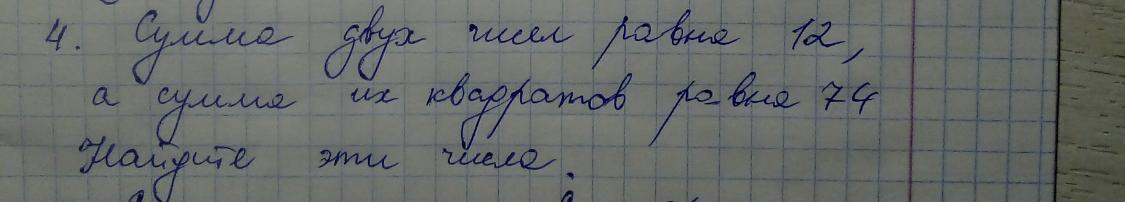 4. Сумма двух чисел равна 12,
а сумма их квадратов равна 74
Найдите эти числа.